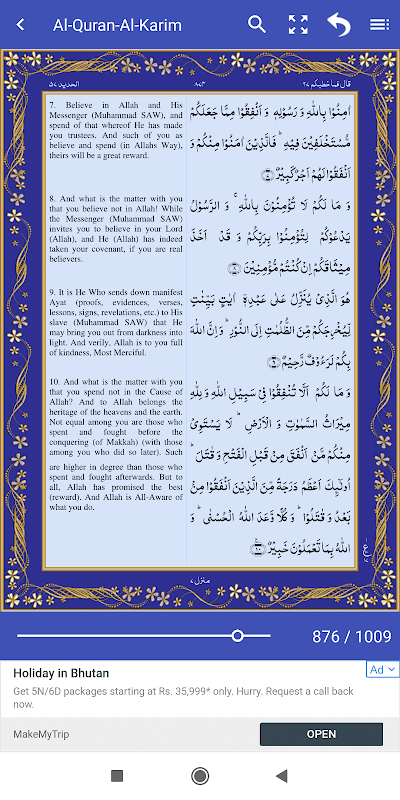 Al-Quran-Al-Karim
الحدید ۵۷
۸۷۳
قال فما خطبکم ۲۷
7. Believe in Allah and His
Messenger (Muhammad SAW), and
spend of that whereof He has made
you trustees. And such of you as
believe and spend (in Allahs Way),
theirs will be a great reward.
اٰمِنُوْا بِاللّٰهِ وَ رَسُوْلِهٖ وَ اَنْفِقُوْا مِمَّا جَعَلَكُمْ
مُّسْتَخْلَفِيْنَ فِيْهِ ؕ فَالَّذِيْنَ اٰمَنُوْا مِنْكُمْ وَ
اَنْفَقُوْا لَهُمْ اَجْرٌ كَبِيْرٌ ۝۷
8. And what is the matter with you
that you believe not in Allah! While
the Messenger (Muhammad SAW)
invites you to believe in your Lord
(Allah), and He (Allah) has indeed
taken your covenant, if you are real
believers.
وَ مَا لَكُمْ لَا تُؤْمِنُوْنَ بِاللّٰهِ ۚ وَ الرَّسُوْلُ
يَدْعُوْكُمْ لِتُؤْمِنُوْا بِرَبِّكُمْ وَ قَدْ اَخَذَ
مِيْثَاقَكُمْ اِنْ كُنْتُمْ مُّؤْمِنِيْنَ ۝۸
9. It is He Who sends down manifest
Ayat (proofs, evidences, verses,
lessons, signs, revelations, etc.) to His
slave (Muhammad SAW) that He
may bring you out from darkness into
light. And verily, Allah is to you full
of kindness, Most Merciful.
هُوَ الَّذِيْ يُنَزِّلُ عَلٰى عَبْدِهٖۤ اٰيٰتٍۭ بَيِّنٰتٍ
لِّيُخْرِجَكُمْ مِّنَ الظُّلُمٰتِ اِلَى النُّوْرِ ؕ وَ اِنَّ اللّٰهَ
بِكُمْ لَرَءُوْفٌ رَّحِيْمٌ ۝۹
10. And what is the matter with you
that you spend not in the Cause of
Allah? And to Allah belongs the
heritage of the heavens and the earth.
Not equal among you are those who
spent and fought before the
conquering (of Makkah) (with those
among you who did so later). Such
are higher in degree than those who
spent and fought afterwards. But to
all, Allah has promised the best
(reward). And Allah is All-Aware of
what you do.
وَ مَا لَكُمْ اَلَّا تُنْفِقُوْا فِيْ سَبِيْلِ اللّٰهِ وَ لِلّٰهِ
مِيْرَاثُ السَّمٰوٰتِ وَ الْاَرْضِ ؕ لَا يَسْتَوِيْ
مِنْكُمْ مَّنْ اَنْفَقَ مِنْ قَبْلِ الْفَتْحِ وَ قٰتَلَ ؕ
اُولٰٓىِٕكَ اَعْظَمُ دَرَجَةً مِّنَ الَّذِيْنَ اَنْفَقُوْا مِنْۢ
بَعْدُ وَ قٰتَلُوْا ؕ وَ كُلًّا وَّعَدَ اللّٰهُ الْحُسْنٰى ؕ وَ
اللّٰهُ بِمَا تَعْمَلُوْنَ خَبِيْرٌ ۝۱۰
منزل ۷
876 / 1009
Holiday in Bhutan
Ad
Get 5N/6D packages starting at Rs. 35,999* only. Hurry. Request a call back
now.
MakeMyTrip
OPEN